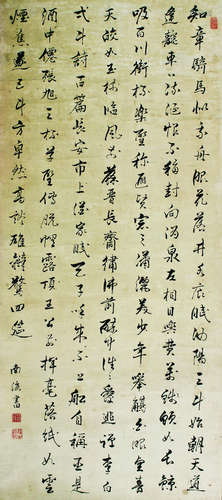 知章騎馬似乘船眼花落井水底眠汝陽三斗始朝天道
逢麴車口流涎恨不移封向酒泉左相日興費萬錢飲如長鯨
吸百川銜杯樂聖稱避賢宗之瀟灑美少年舉觴白眼望青
天皎如玉樹臨風前蘇晉長齋繡佛前醉中往往愛逃禪李白
一斗詩百篇長安市上酒家眠天子呼來不上船自稱臣是
酒中僊張旭三杯草聖傳脫帽露頂王公前揮毫落紙如雲
煙焦遂五斗方卓然高談雄辯驚四筵
南書